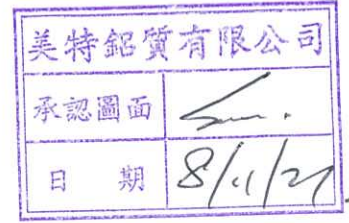 美特鋁質有限公司
承認圖面
日期 8/11/21